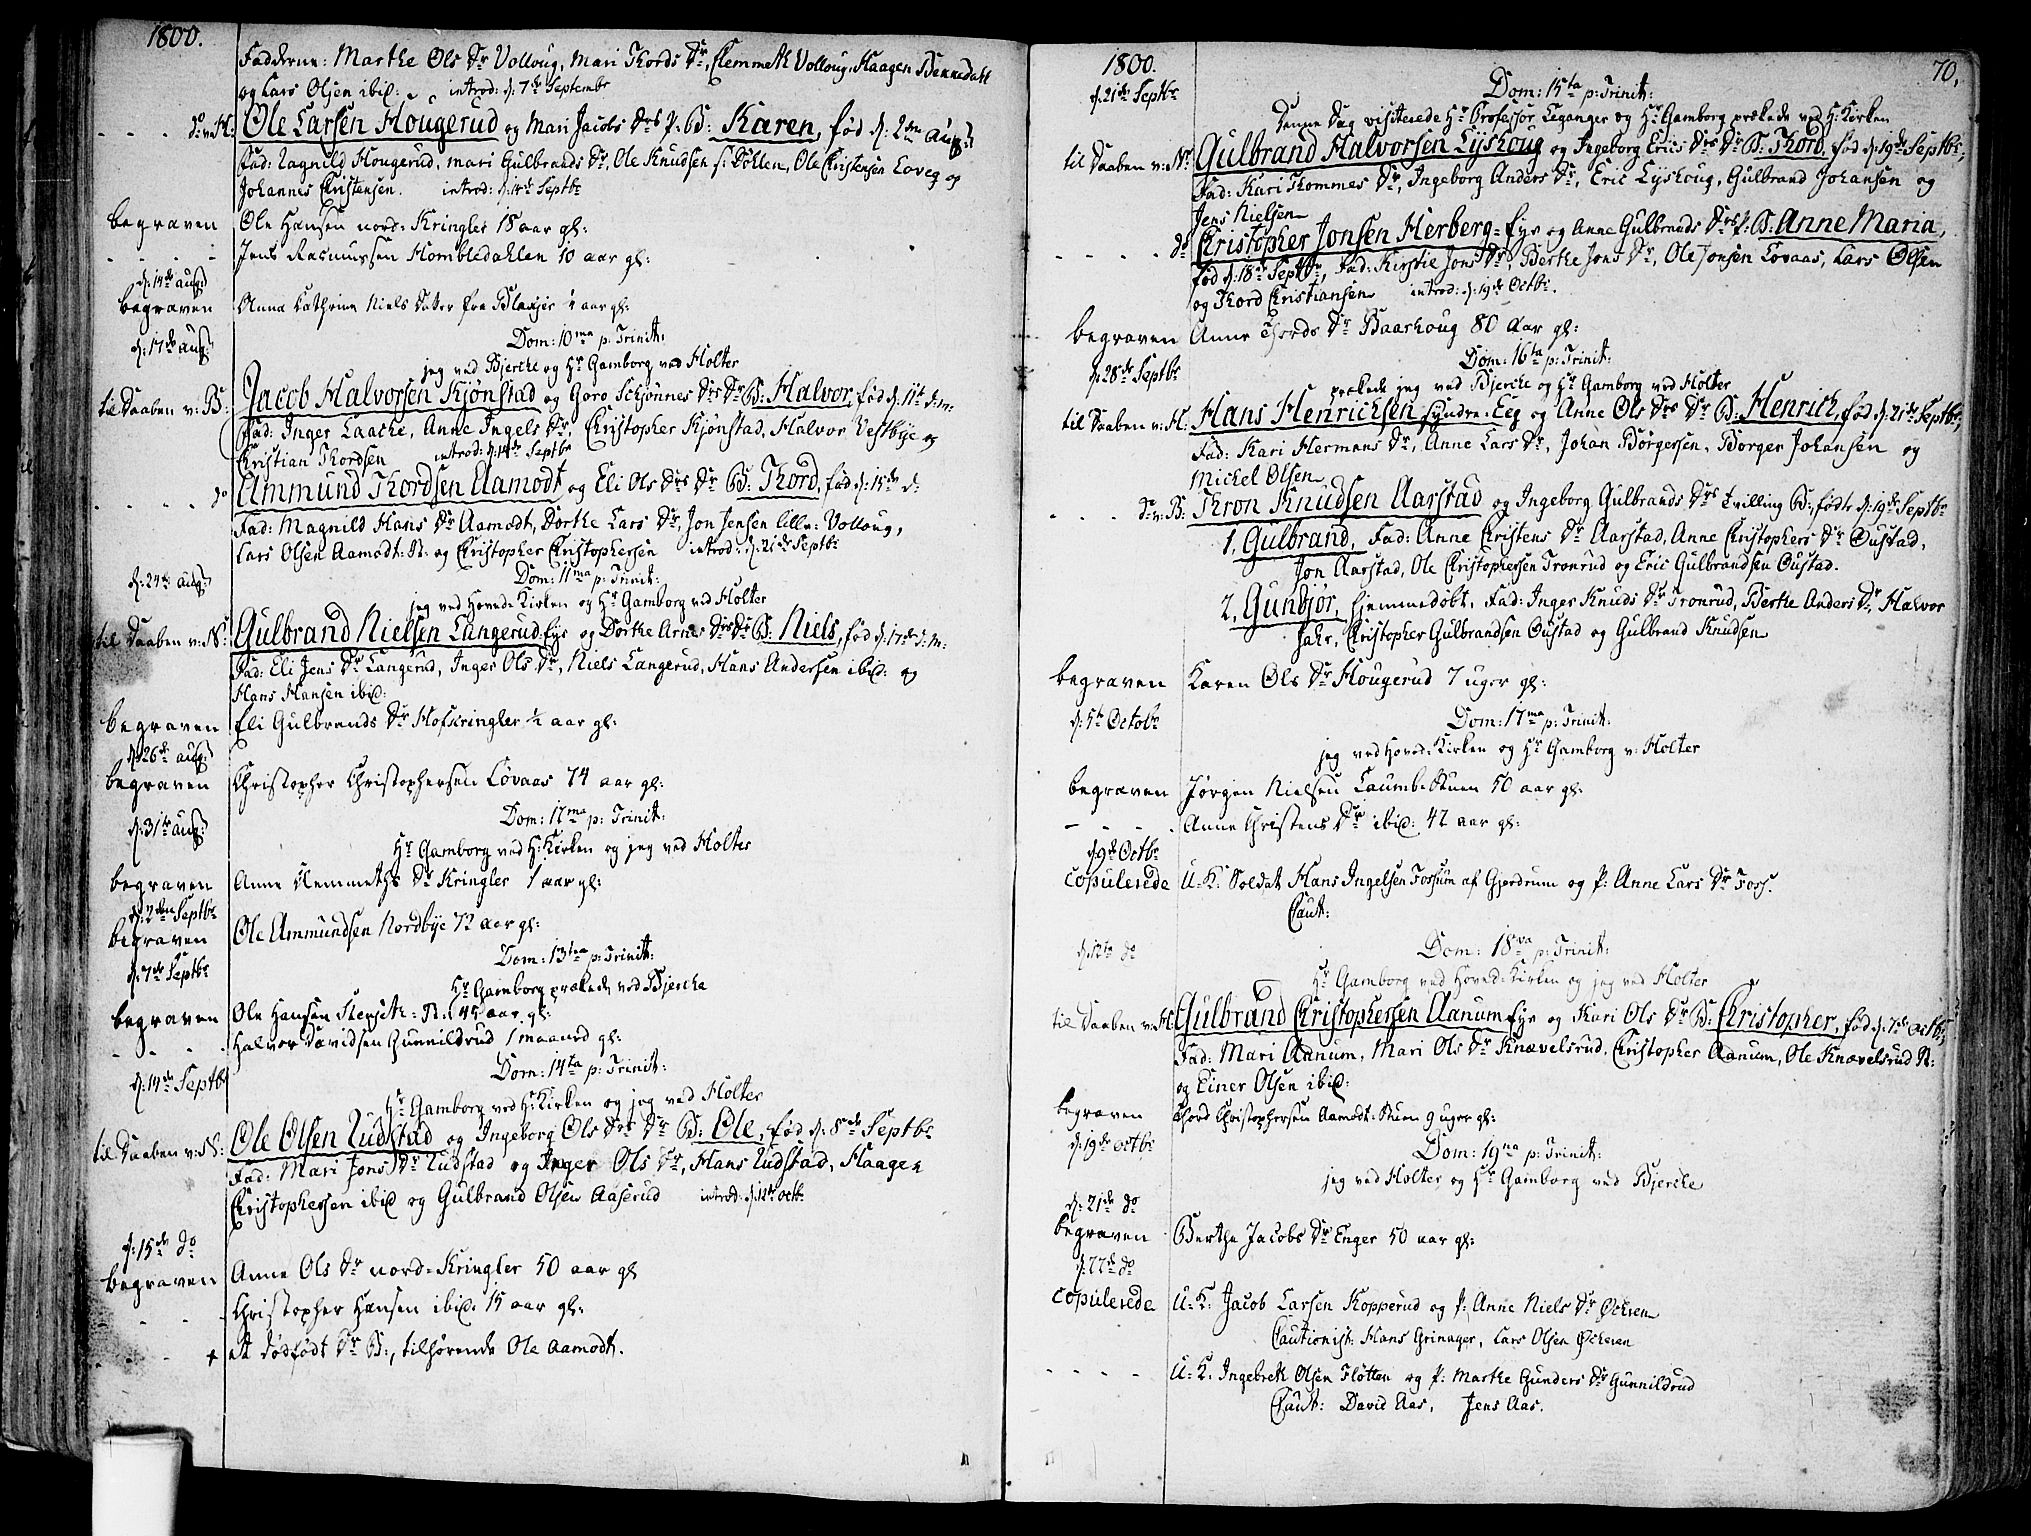 1800.
Fadderne: Marthe Ols Dr Volloug, Mari Thords Dr, Clemmeth Volloug, Haagen Bennedahl
og Lars Olsen ibid: introd: d: 7de Septembr
- - - - do v: H: Ole Larsen Hougerud og Mari Jacobs Drs P: B: Karen, fød d: 2den aug:
Fad: Ragnild Hougerud, Mari Gulbrands Dr, Ole Knudsen s: Døhlen, Ole Christensen Løveg og
Johannes Christensen. introd: d: 14de Septbr
begraven Ole Hansen nord-Kringler 18 aar gl:
- - - - Jens Rasmussen Hombledahlen 10 aar gl:
d: 14de aug:
begraven Anna Cathrina Niels Datter fra Blaxjer 1 aar gl:
d: 17de aug: Dom: 10ma p: Trinit:
jeg ved Bjerche og Hr Gamborg ved Holter
til Daaben v: B: Jacob Halvorsen Kjønstad og Goro Schjønnes Drs Dr B: Halvor, fød d: 11te d: m:
Fad: Inger Laache, Anne Ingels Dr, Christopher Kjønstad, Halvor Vestbye og
Christian Thordsen introd: d: 14de Septbr
- - - - do Ammund Thordsen Aamodt og Eli Ols Drs Dr B: Thord, fød d: 15de d:
Fad: Magnild Hans Dr Aamodt, Dorthe Lars Dr, Jon Jensen lille-Volloug,
Lars Olsen Aamodt: N: og Christopher Christophersen introd: d: 21de Septbr
d: 24de aug: Dom: 11ma p: Trinit:
jeg ved Hoved-Kirken og Hr Gamborg ved Holter
til Daaben v: N: Gulbrand Nielsen Langerud Eye og Dorthe Arnes Drs Dr B: Niels, fød d: 17de d: m:
Fad: Eli Jens Dr Langerud, Inger Ols Dr, Niels Langerud, Hans Andersen ibid: og
Hans Hansen ibid:
begraven Eli Gulbrands Dr Hofskringler ½ aar gl:
d: 26de aug:
begraven Christopher Christophersen Løvaas 74 aar gl:
d: 31te aug: Dom: 12ma p: Trinit:
Hr Gamborg ved H: Kirken og jeg ved Holter
begraven Anne Clemmeths Dr Kringler 1 aar gl:
d: 2den Septbr
begraven Ole Ammundsen Nordbye 72 aar gl:
d: 7de Septbr Dom: 13tia p: Trinit:
Hr Gamborg prækede ved Bjerche
begraven Ole Hansen N: 45 aar gl:
- - - - Halvor Davidsen Gunnildrud 1 maaned gl:
d: 14de Septbr Dom: 14ta p: Trinit:
Hr Gamborg ved H: Kirken og jeg ved Holter
til Daaben v: N: Ole Olsen Rudstad og Ingeborg Ols Drs Dr B: Ole, fød d: 8de Septbr
Fad: Mari Jons Dr Rudstad og Inger Ols Dr, Hans Rudstad, Haagen
Christophersen ibid og Gulbrand Olsen Aaserud introd: d: 12te octb:
d: 15de do
begraven Anne Ols Dr nord-Kringler 50 aar gl
- - - - Christopher Hansen ibid: 15 aar gl:
- - - - + et dødfødt Dr B:, tilhørende Ole Aamodt.
1800. 70.
d: 21de Septbr Dom: 15ta p: Trinit:
Denne Dag visiterede Hr Professor Leganger og Hr Gamborg prækede ved H: Kirken
til Daaben v: N: Gulbrand Halvorsen Lyshoug og Ingeborg Erics Drs Dr B: Thord, fød d: 19de Septbr,
Fad: Kari Thommes Dr, Ingeborg Anders Dr, Eric Lyshoug, Gulbrand Johansen og
Jens Nielsen
- - - - do Christopher Jonsen Herberg-Eye og Anne Gulbrands Drs P: B: Anne Maria,
fød d: 18de Septbr, Fad: Kirstie Jons Dr, Berthe Jons Dr, Ole Jonsen Løvaas, Lars Olsen
og Thord Christiansen introd: d: 19de Octbr.
begraven Anne Thords Dr Baarhoug 80 Aar gl:
d: 28de Septbr Dom: 16ta p: Trinit:
prækede jeg ved Bjerche og Hr Gamborg ved Holter
til Daaben v: H: Hans Henrichsen søndre-Eeg og Anne Ols Drs Dr B: Henrich, fød d: 21de Septbr,
Fad: Kari Hermans Dr, Anne Lars Dr, Johan Børgersen, Borger Johansen og
Michel Olsen
- - - - do v: B: Thron Knudsen Aarstad og Ingeborg Gulbrands Drs tvilling B:, fødte d: 19de Septbr
1, Gulbrand, Fad: Anne Christens Dr Aarstad, Anne Christophers Dr Oustad,
Jon Aarstad, Ole Christophersen Tronrud og Eric Gulbrandsen Oustad.
2, Gunbjør, hjemmedøbt, Fad: Inger Knuds Dr Tronrud, Berthe Anders Dr, Halvor
Sahr, Christopher Gulbrandsen Oustad og Gulbrand Knudsen
begraven Karen Ols Dr Hougerud 7 uger gl:
d: 5te Octobr Dom: 17ma p: Trinit:
jeg ved Hoved-Kirken og Hr Gamborg v: Holter
begraven Jørgen Nielsen Laumb-Stuen 50 aar gl:
- - - - Anne Christens Dr ibid: 42 aar gl:
d: 9de Octbr
copulerede U: K: Soldat Hans Ingelsen Fossum af Gjerdrum og P: Anne Lars Dr Foss.
Caut:
d: 12te do Dom: 18va p: Trinit:
Hr Gamborg ved Hoved-Kirken og jeg ved Holter
til Daaben v: H: Gulbrand Christophersen Aanum Eye og Kari Ols Dr B: Christopher, fød d: 7de octbr,
Fad: Mari Aanum, Mari Ols Dr Knævelsrud, Christopher Aanum, Ole Knævelsrud N:
og Einer Olsen ibid:
begraven Thord Christophersen Aamodt-Stuen 9 uger gl:
d: 19de octbr Dom: 19na p: Trinit:
jeg ved Holter og Hr Gamborg ved Bjerche
d: 21de do
begraven Berthe Jacobs Dr Enger 50 aar gl:
d: 22de do
copulerede U: K: Jacob Larsen Kopperud og P: Anne Niels Dr Ocheren
Cautionist: Hans Grinager, Lars Olsen Ocheren
- - - - U: K: Ingebreth Olsen Fløtten og P: Marthe Gunders Dr Gunnildrud
Caut: David Aas, Jens Aas.